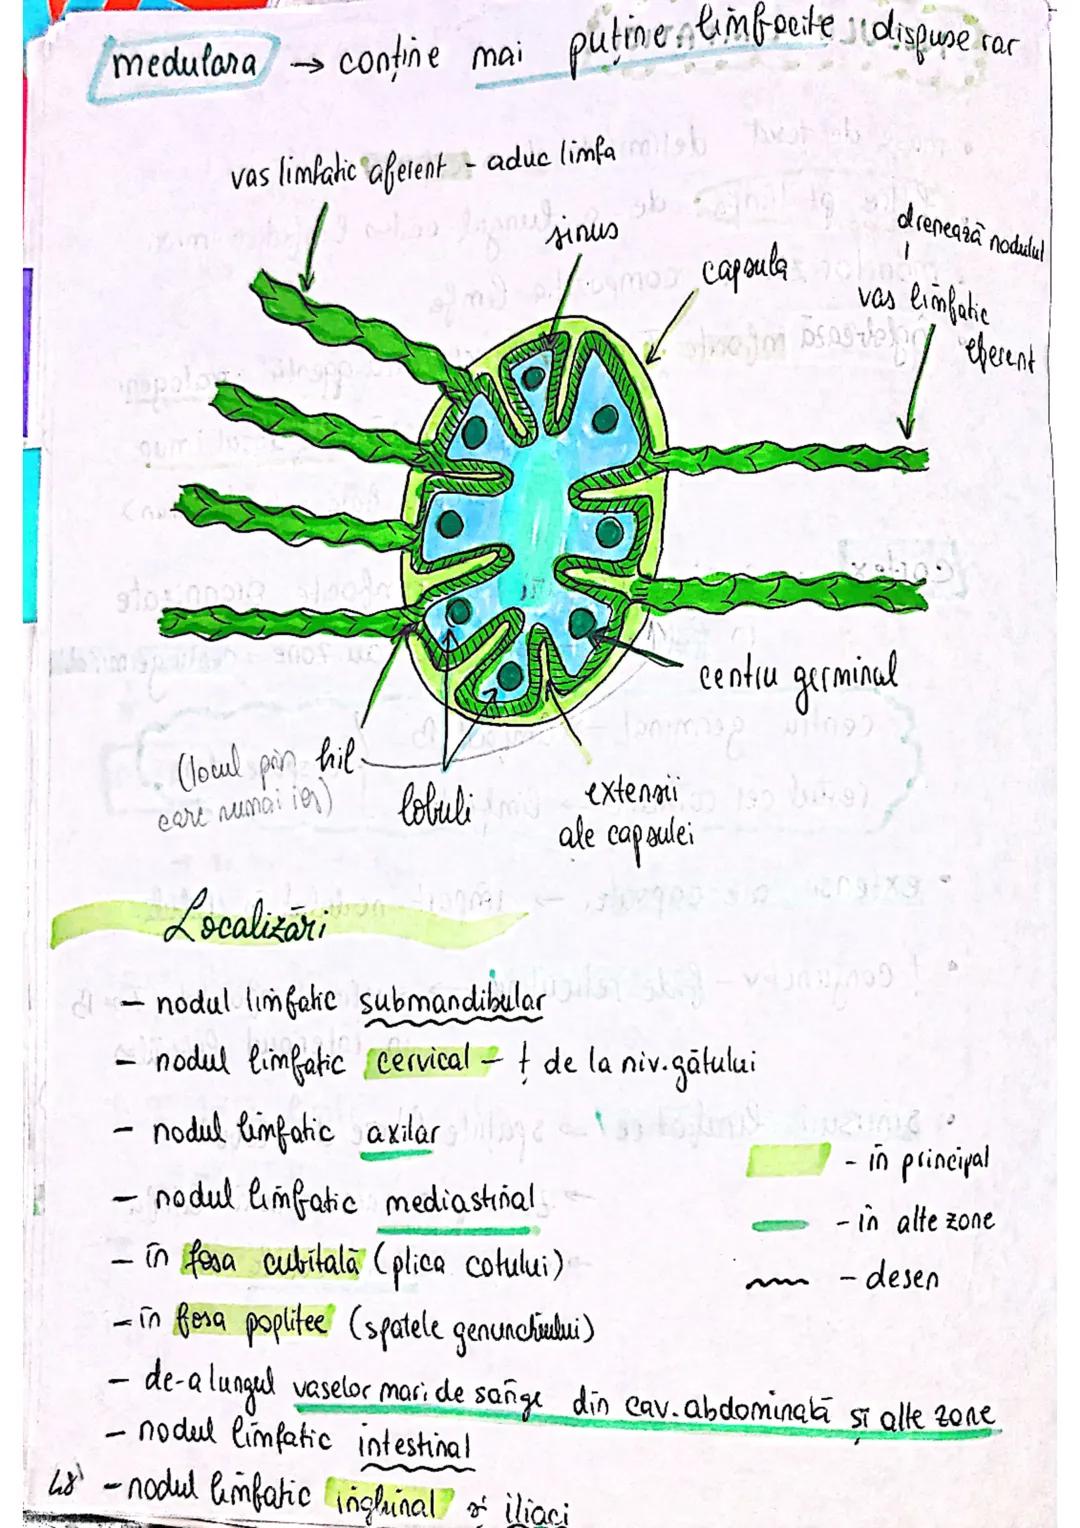 medulara → conține mai puține limfocite dispuse rar
vas limfatic aferent - aduc limfa
sinus
capsula
drenează nodulul
vas limfatic
eferent
centru germinal
(locul prin hil
care numai ies)
lobuli
extensii
ale capsulei
Localizări
- nodul limfatic submandibular
- nodul limfatic cervical - ț de la niv. gâtului
- nodul limfatic axilar
- nodul limfatic mediastinal
- în fosa cubitală (plica cotului)
- în fosa poplitee (spatele genunchiului)
- de-a lungul vaselor mari de sânge din cav. abdominală și alte zone
- nodul limfatic intestinal
- nodul limfatic inghinal și iliaci
- în principal
- în alte zone
- desen
48